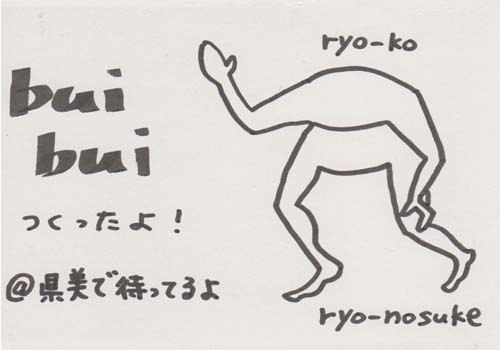 bui
bui
つくったよ！
@県美で待ってるよ
ryo-ko
ryo-nosuke